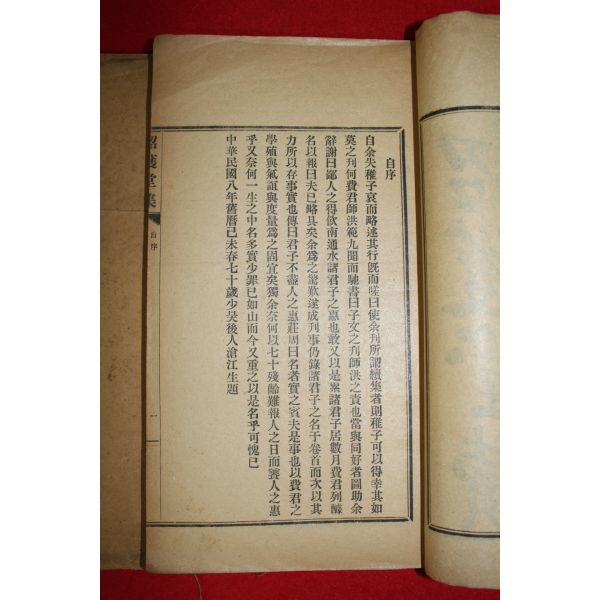 自序
自余失稚子哀而略述其行旣而嗟曰使余刊所謂續集者則稚子可以得幸其如
莫之刊何費君師洪範九聞而馳書曰子文之刊師洪之責也當與同好者圖助余
辭謝曰鄙人之得飮南通水諸君子之惠也敢又以是累諸君子居數月費君列醵
名以報曰夫已略具矣余爲之驚歎遂成刊事仍錄諸君子之名于卷首而次以其
力所以存事實也傳曰君子不盡人之惠莊周曰名者實之賓夫是事也以費君之
學殖與氣誼與度量爲之固宜矣獨余奈何以七十殘齡難報人之日而饕人之惠
乎又奈何一生之中名多實少罪已如山而今又重之以是名乎可愧已
中華民國八年舊曆已未春七十歲少吳後人滄江生題
韶濩堂集
自序
一